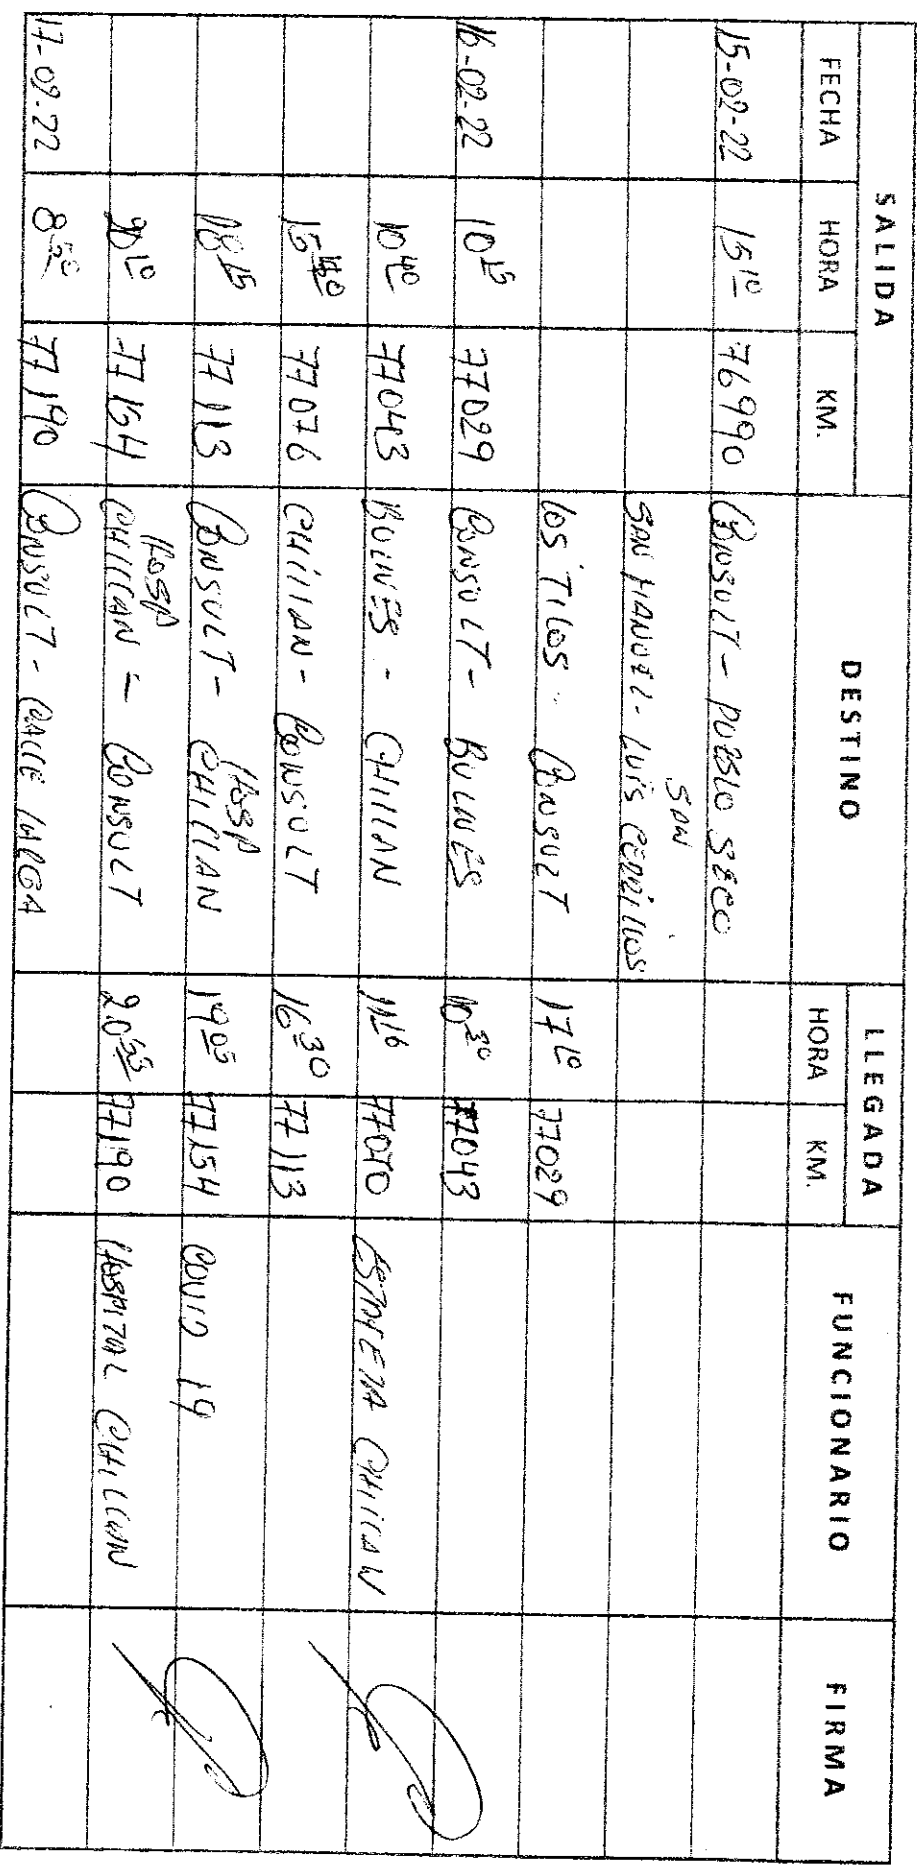 SALIDA DESTINO LLEGADA FUNCIONARIO FIRMA
FECHA HORA KM. HORA KM.
15-02-22 15 10 76990 CONSULT - PUEBLO SECO
SAN
SAN MANUEL - LUIS CERRILLOS
LOS TILOS - CONSULT 17 10 77029
16-02-22 10 15 77029 CONSULT - BULNES 10 30 77043
10 40 77043 BULNES - CHILLAN 11 16 77070 ESTAFETA CHILLAN
15 40 77076 CHILLAN - CONSULT 16 30 77113
HOSP
18 15 77113 CONSULT - CHILLAN 19 05 77154 COVID 19
HOSP
20 10 77154 CHILLAN - CONSULT 20 55 77190 HOSPITAL CHILLAN
17-02-22 8 55 77190 CONSULT - CALLE LARGA